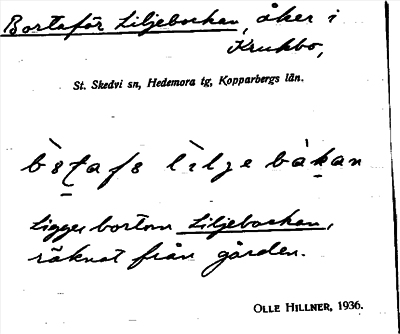 Bortaför Liljebackan, åker i
Krukbo,
St. Skedvi sn, Hedemora tg, Kopparbergs län.
Ligger bortom Liljebackan,
räknat från gården.
OLLE HILLNER, 1936.